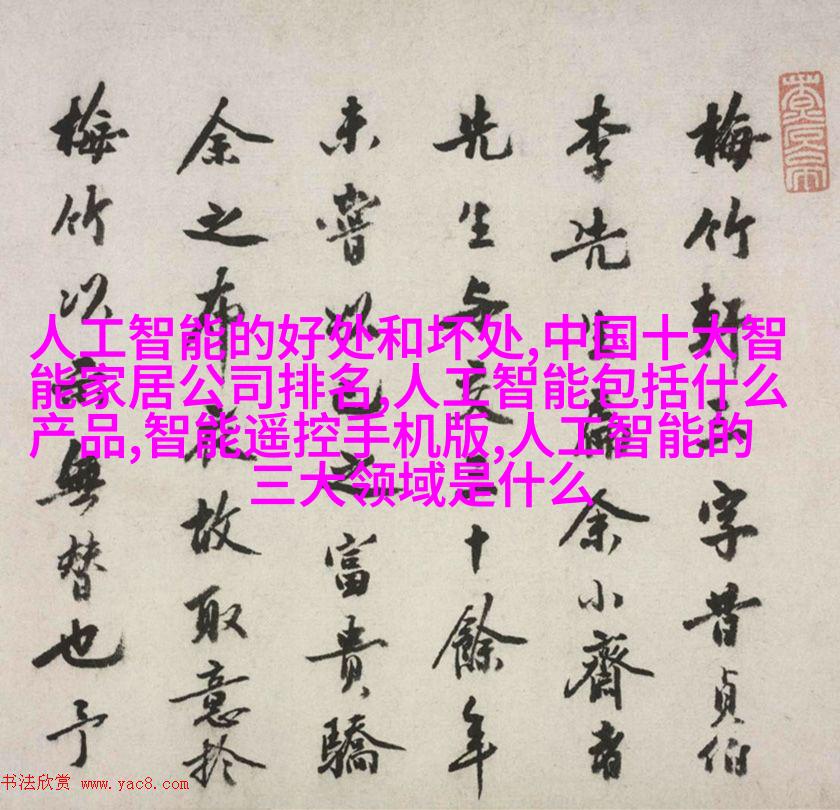 梅竹軒三字昔貞伯
李先生為余小齋書
先生与交三十餘年
未嘗以己之富貴驕
余之布衣故取意於
梅竹以無替也予
人工智能的好处和坏处,中国十大智
能家居公司排名,人工智能包括什么
产品,智能遥控手机版,人工智能的
三大领域是什么
书法欣赏 www.yac8.com